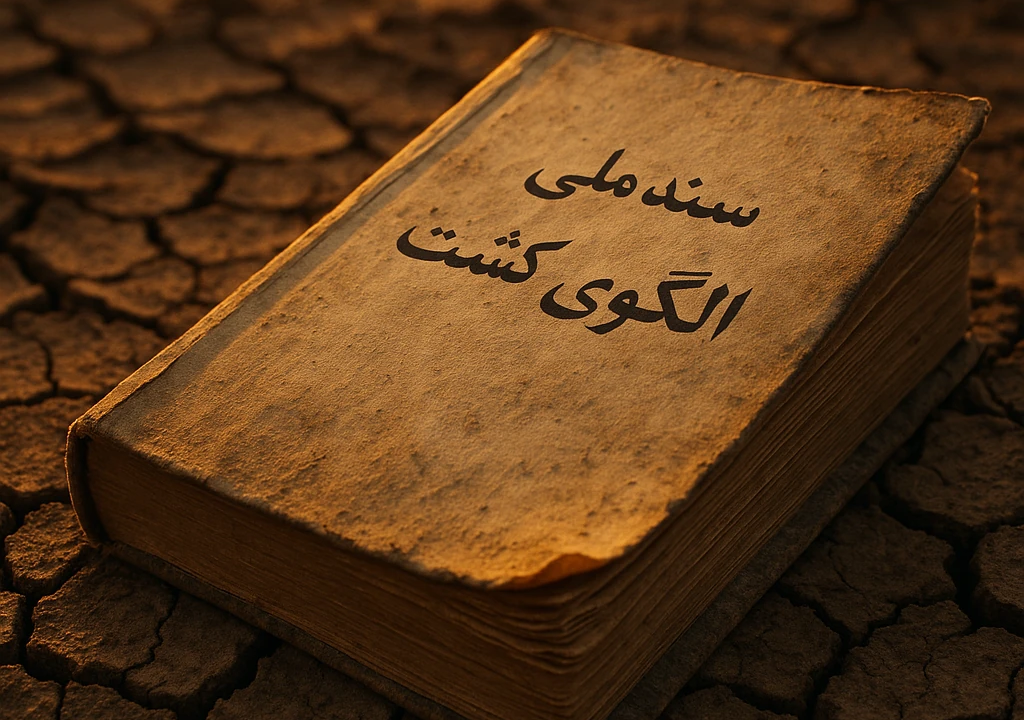 سند ملی
الگوی کشت